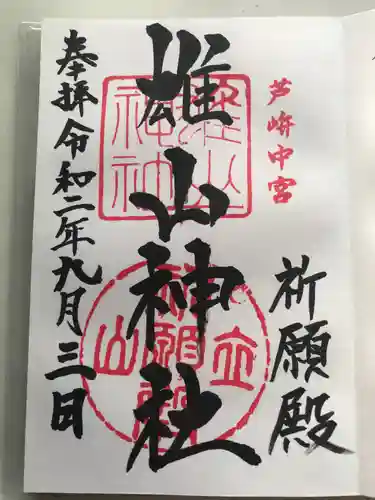 芦峅中宮
祈願殿
雄山神社
奉拝令和二年九月三日
雄山神神
立山
祈願殿